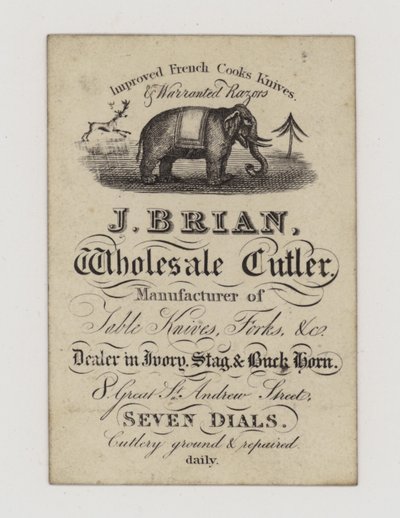 Improved French Cooks Knives.
& Warranted Razors
J. BRIAN,
Wholesale Cutler,
Manufacturer of
Table Knives, Forks, &c.
Dealer in Ivory, Stag, & Buck Horn.
8, Great St. Andrew Street,
SEVEN DIALS.
Cutlery ground & repaired
daily.